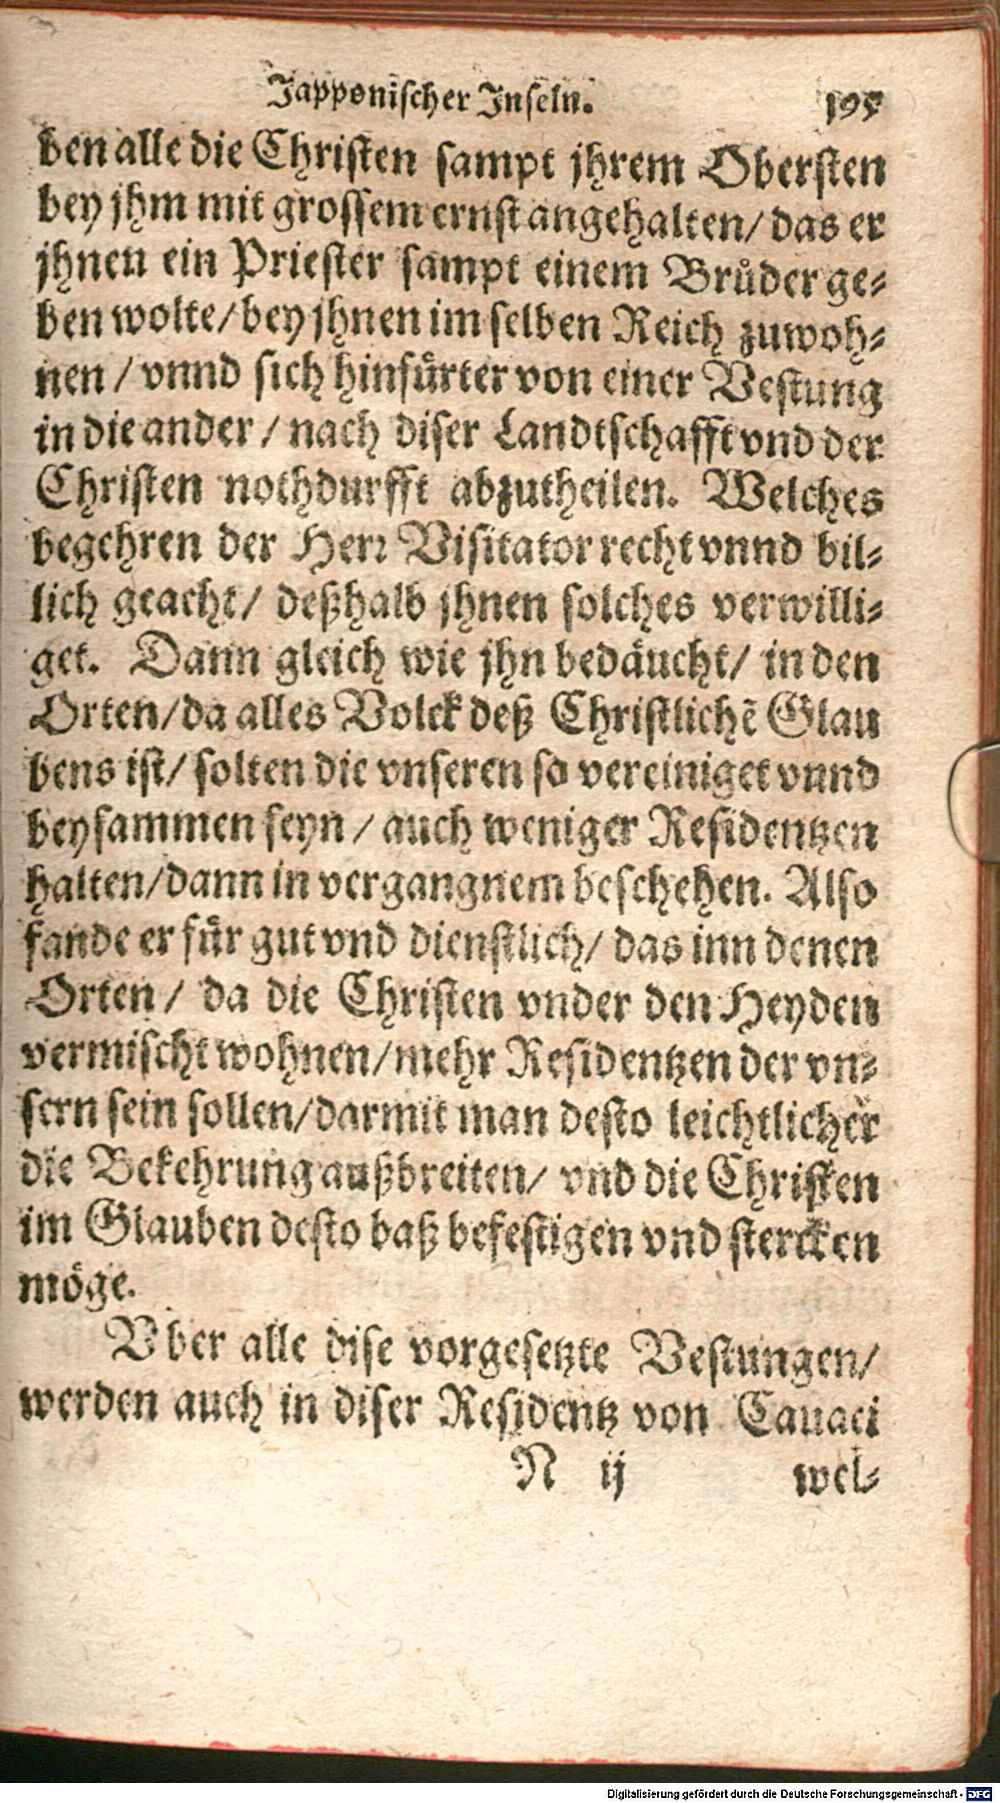 Japponischer Inseln. 195
ben alle die Christen sampt jhrem Obersten
bey jhm mit grossem ernst angehalten/ das er
jhnen ein Priester sampt einem Brůder ge-
ben wolte/ bey jhnen im selben Reich zuwoh-
nen / vnnd sich hinfürter von einer Vestung
in die ander / nach diser Landtschafft vnd der
Christen nothdurfft abzutheilen. Welches
begehren der Herr Visitator recht vnnd bil-
lich geacht/ deßhalb jhnen solches verwilli-
get. Dann gleich wie jhn bedäucht/ in den
Orten/ da alles Volck deß Christlichē Glau
bens ist/ solten die vnseren so vereiniget vnnd
beysammen seyn / auch weniger Residentzen
halten/ dann in vergangnem beschehen. Also
fande er für gut vnd dienstlich/ das inn denen
Orten / da die Christen vnder den Heyden
vermischt wohnen/ mehr Residentzen der vn-
sern sein sollen/ darmit man desto leichtlicher
die Bekehrung außbreiten/ vnd die Christen
im Glauben desto baß befestigen vnd stercken
möge.
Vber alle dise vorgesetzte Vestungen/
werden auch in diser Residentz von Cauaci
N ij wel-
Digitalisierung gefördert durch die Deutsche Forschungsgemeinschaft - DFG